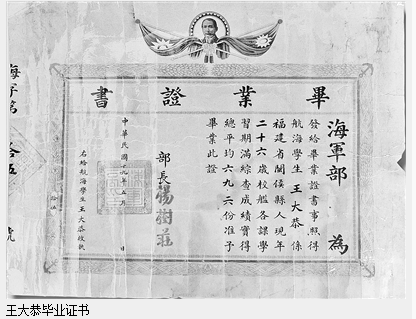 畢業證書
海軍部 為
發給畢業證書事照得
航海學生王大恭係
福建省閩侯縣人現年
二十六歲校艦各課學
習期滿綜查成績實得
總平均六九二份准予
畢業此證
部長楊樹莊
中華民國十九年五月 日
右給航海學生王大恭收執
海字第拾五號
王大恭毕业证书